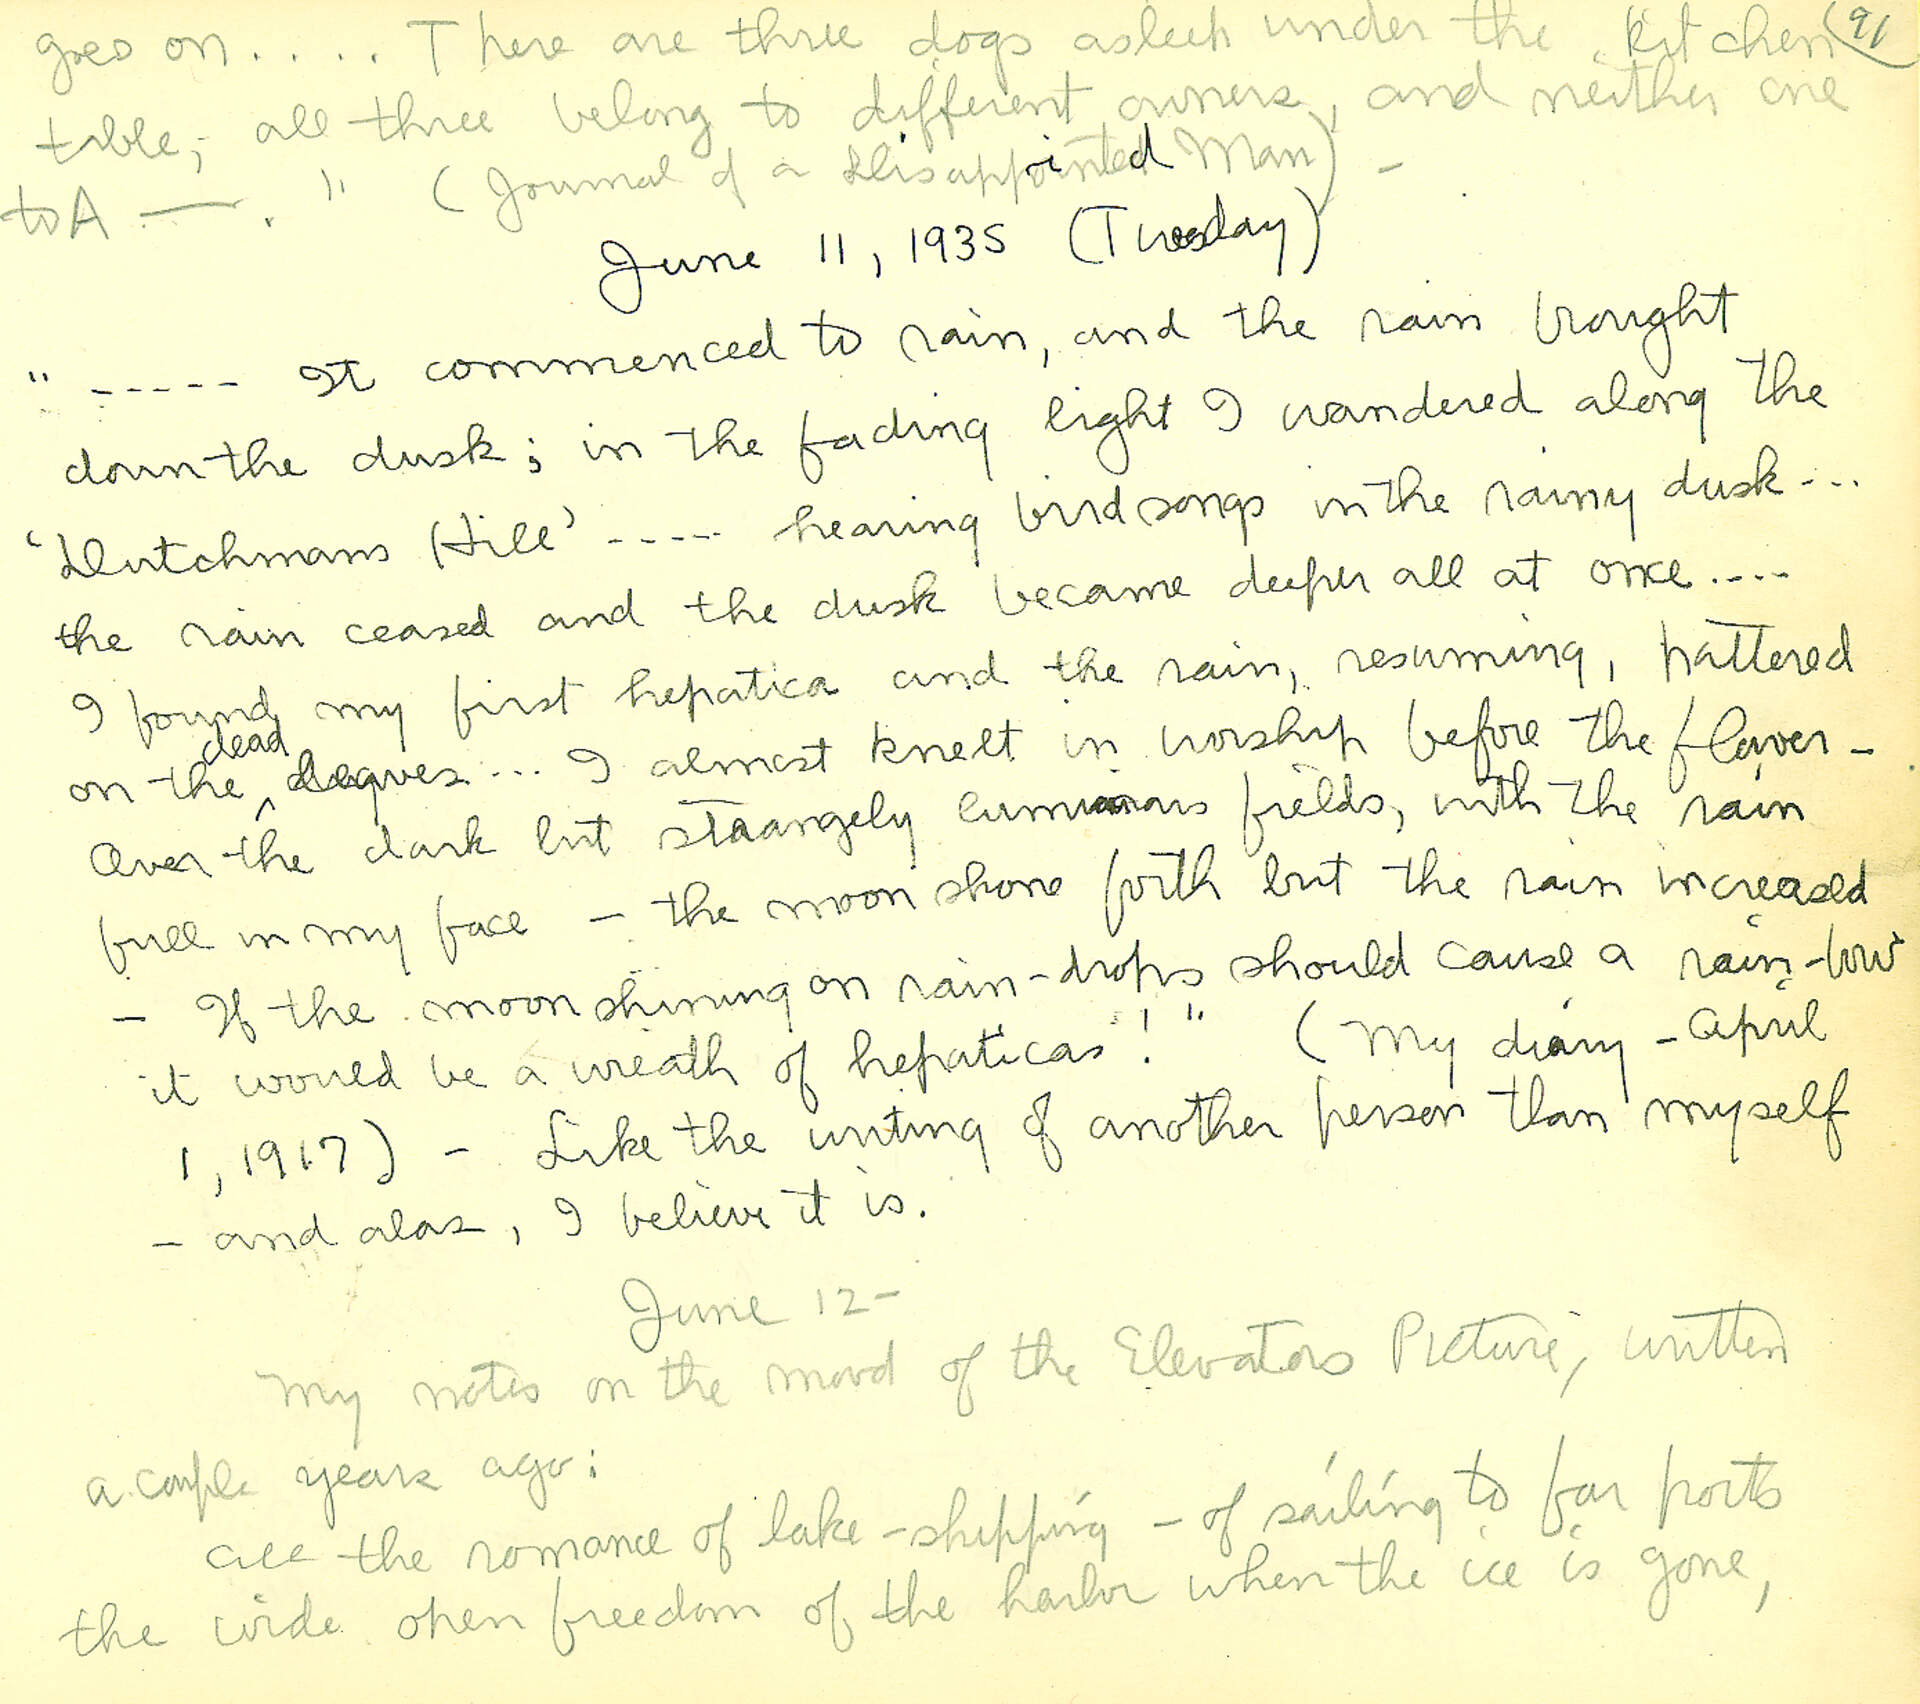 goes on . . . . There are three dogs asleep under the kitchen 91
table; all three belong to different owners, and neither one
to A —. " (Journal of a Disappointed Man) -
June 11, 1935 (Tuesday)
" ----- It commenced to rain, and the rain brought
down the dusk; in the fading light I wandered along the
'Dutchmans Hill' ----- hearing bird songs in the rainy dusk ---
the rain ceased and the dusk became deeper all at once ----
I found my first hepatica and the rain, resuming, pattered
on the dead leaves ... I almost knelt in worship before the flower -
Over the dark but strangely luminous fields, with the rain
full in my face - the moon shone forth but the rain increased
- If the moon shining on rain-drops should cause a rain-bow
it would be a wreath of hepaticas! " (My diary - April
1, 1917) - Like the writing of another person than myself
- and alas, I believe it is.
June 12 -
My notes on the mood of the Elevators Picture, written
a couple years ago:
All the romance of lake-shipping - of sailing to far ports
the wide open freedom of the harbor when the ice is gone,